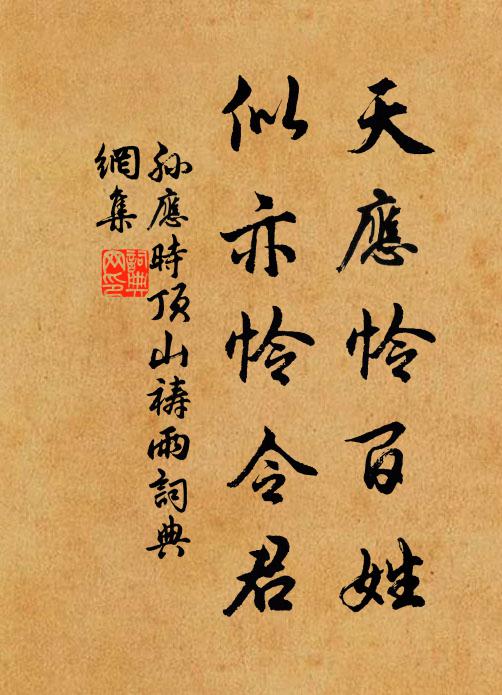 天應怜百姓
似亦怜令君
孙應時頂山禱雨詞典
網集
詞典網印